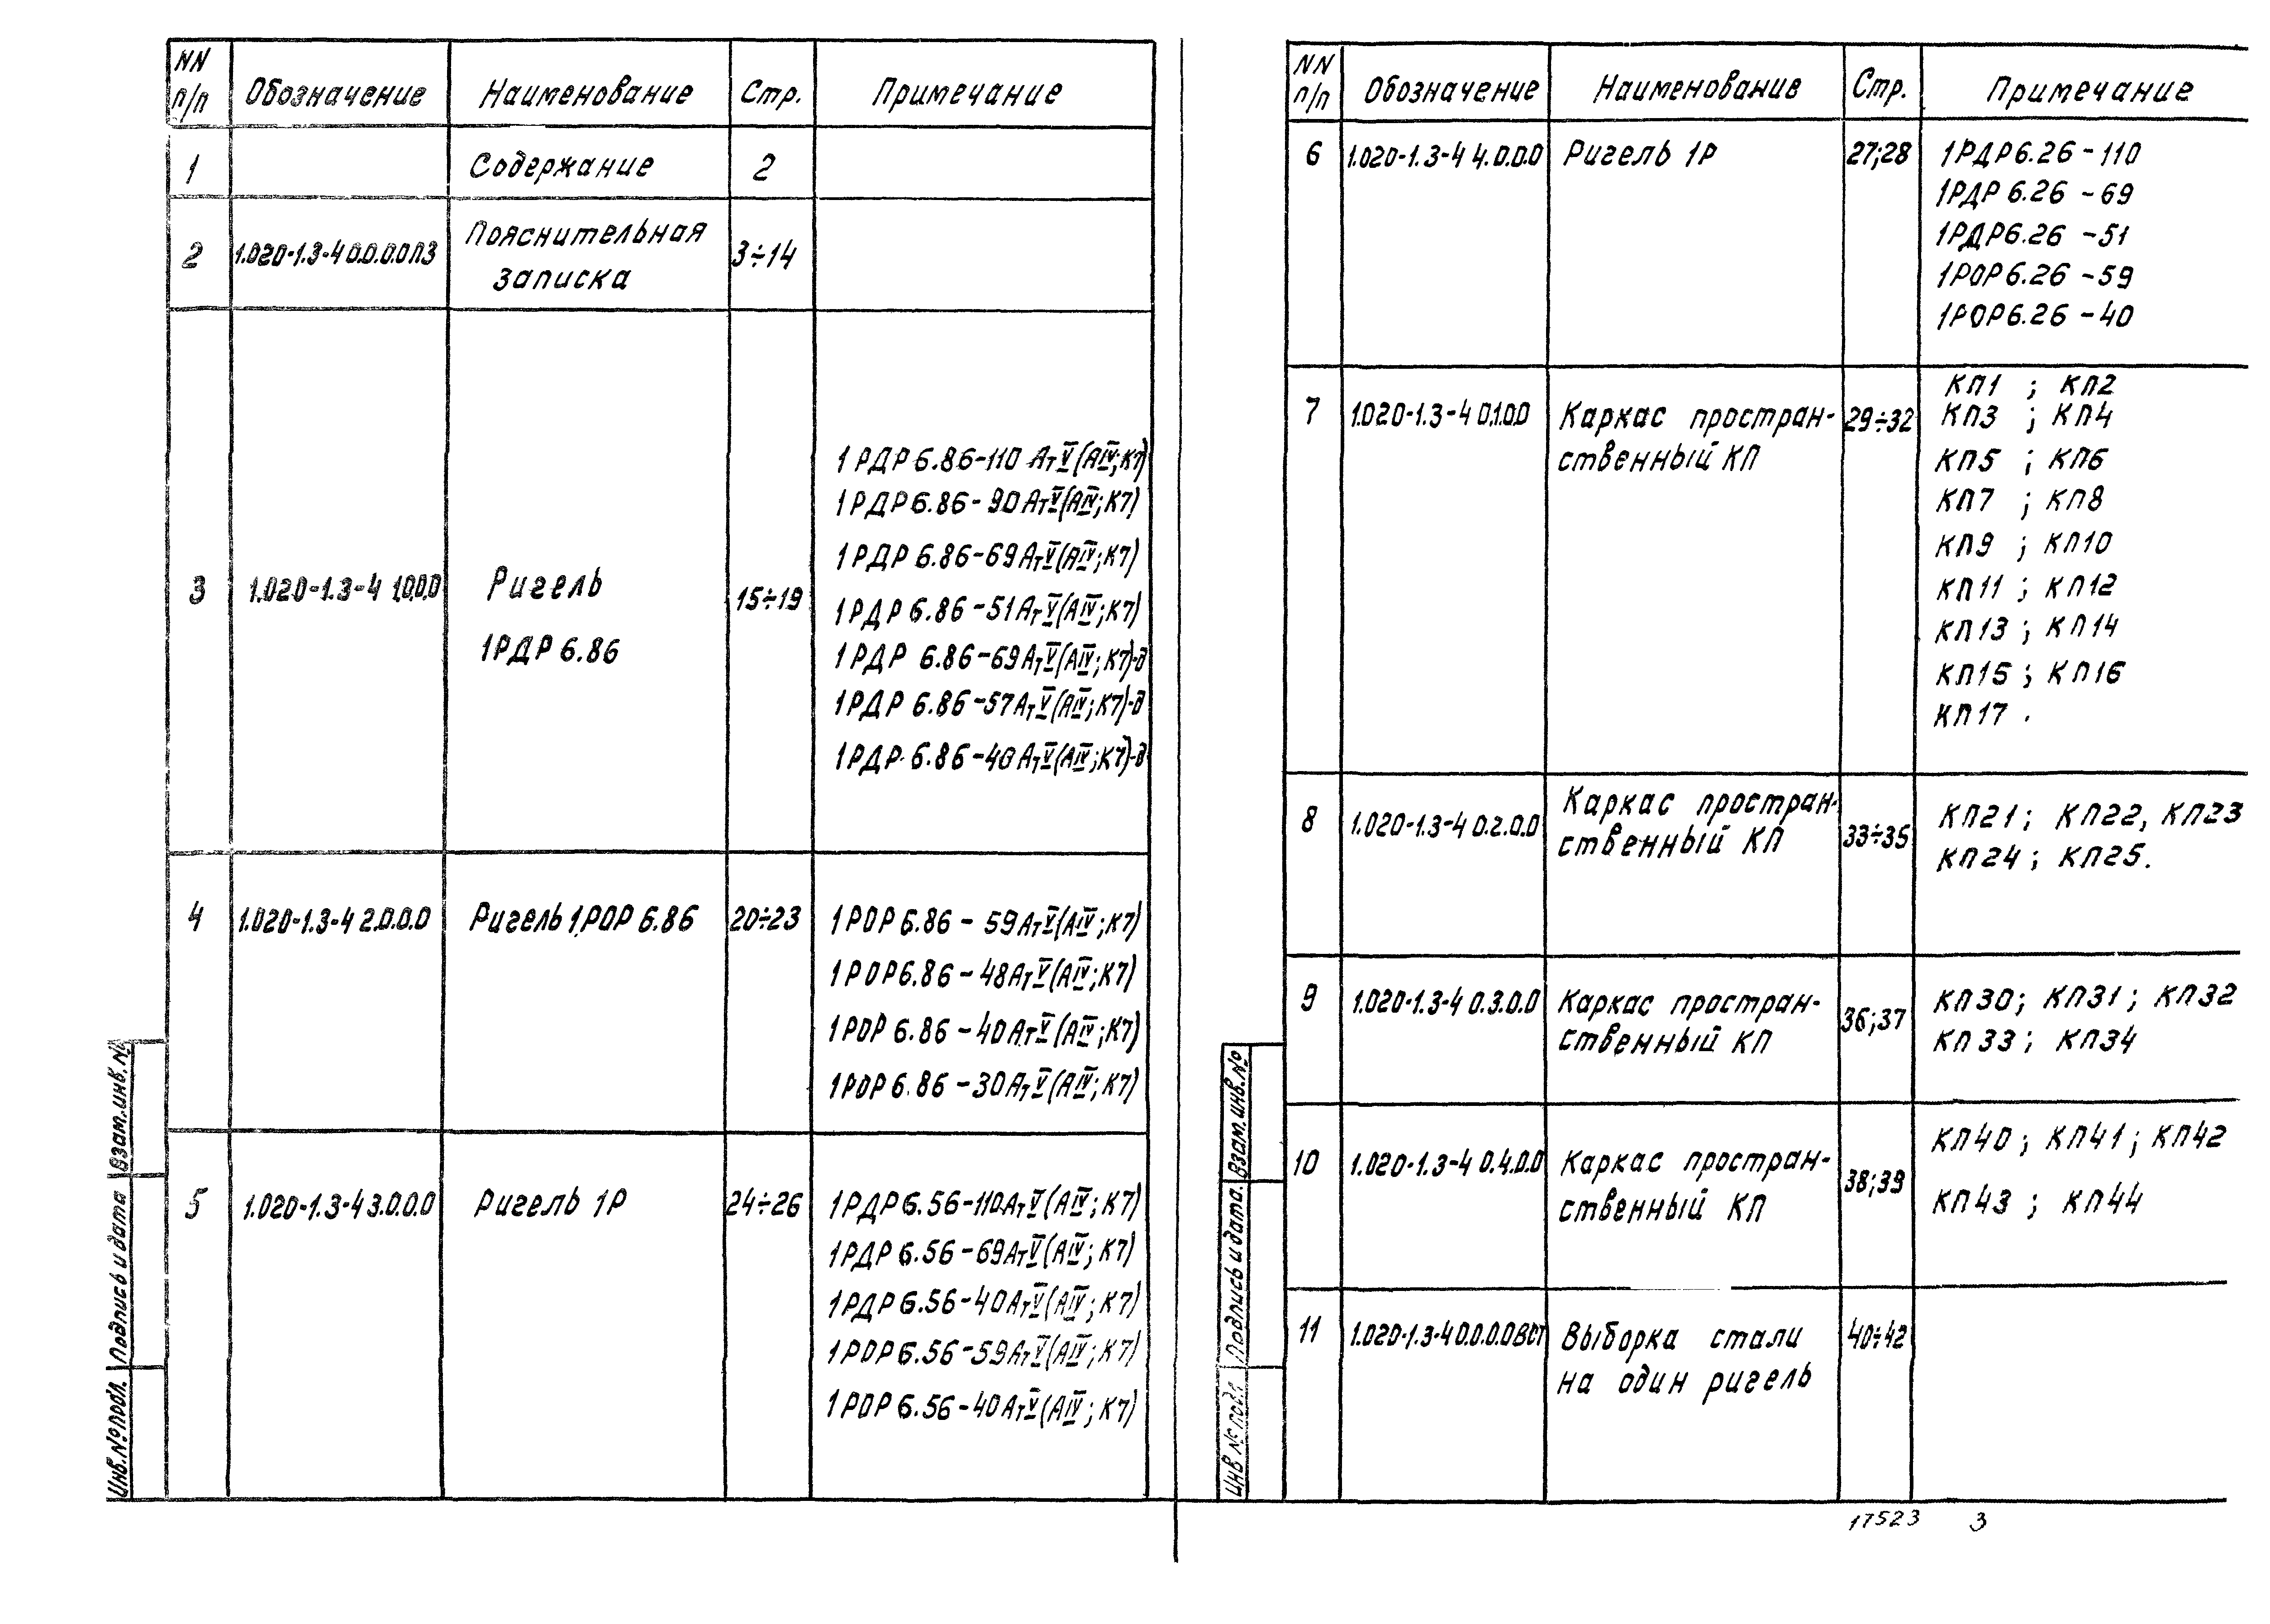 NN п/п Обозначение Наименование Стр. Примечание
1 Содержание 2
2 1.020-1.3-4 0.0.0.0ПЗ Пояснительная записка 3÷14
3 1.020-1.3-4 1.0.0.0 Ригель 1РДР 6.86 15÷19
1РДР 6.86-110 АтV(АIV;К7)
1РДР 6.86-90АтV(АIV;К7)
1РДР 6.86-69АтV(АIV;К7)
1РДР 6.86-51АтV(АIV;К7)
1РДР 6.86-69АтV(АIV;К7)-д
1РДР 6.86-57АтV(АIV;К7)-д
1РДР 6.86-40АтV(АIV;К7)-д
4 1.020-1.3-4 2.0.0.0 Ригель 1РОР 6.86 20÷23 1РОР 6.86-59АтV(АIV;К7)
1РОР 6.86-48АтV(АIV;К7)
1РОР 6.86-40АтV(АIV;К7)
1РОР 6.86-30АтV(АIV;К7)
5 1.020-1.3-4 3.0.0.0 Ригель 1Р 24÷26 1РДР 6.56-110АтV(АIV;К7)
1РДР 6.56-69АтV(АIV;К7)
1РДР 6.56-40АтV(АIV;К7)
1РОР 6.56-59АтV(АIV;К7)
1РОР 6.56-40АтV(АIV;К7)
Взам.инв.№
Подпись и дата
Инв.№подл.
NN п/п Обозначение Наименование Стр. Примечание
6 1.020-1.3-4 4.0.0.0 Ригель 1Р 27;28 1РДР6.26-110
1РДР 6.26-69
1РДР6.26-51
1РОР6.26-59
1РОР6.26-40
7 1.020-1.3-4 0.1.0.0 Каркас простран-ственный КП 29÷32
КП1 ; КП2
КП3 ; КП4
КП5 ; КП6
КП7 ; КП8
КП9 ; КП10
КП11 ; КП12
КП13 ; КП14
КП15 ; КП16
КП17 .
8 1.020-1.3-4 0.2.0.0 Каркас простран-ственный КП 33÷35
КП21; КП22, КП23
КП24; КП25.
9 1.020-1.3-4 0.3.0.0 Каркас простран-ственный КП 36;37
КП30; КП31; КП32
КП33; КП34
10 1.020-1.3-4 0.4.0.0 Каркас простран-ственный КП 38;39
КП40; КП41; КП42
КП43 ; КП44
11 1.020-1.3-4 0.0.0.0ВСт Выборка стали на один ригель 40÷42
Взам.инв.№
Подпись и дата.
Инв №подл
17523 3